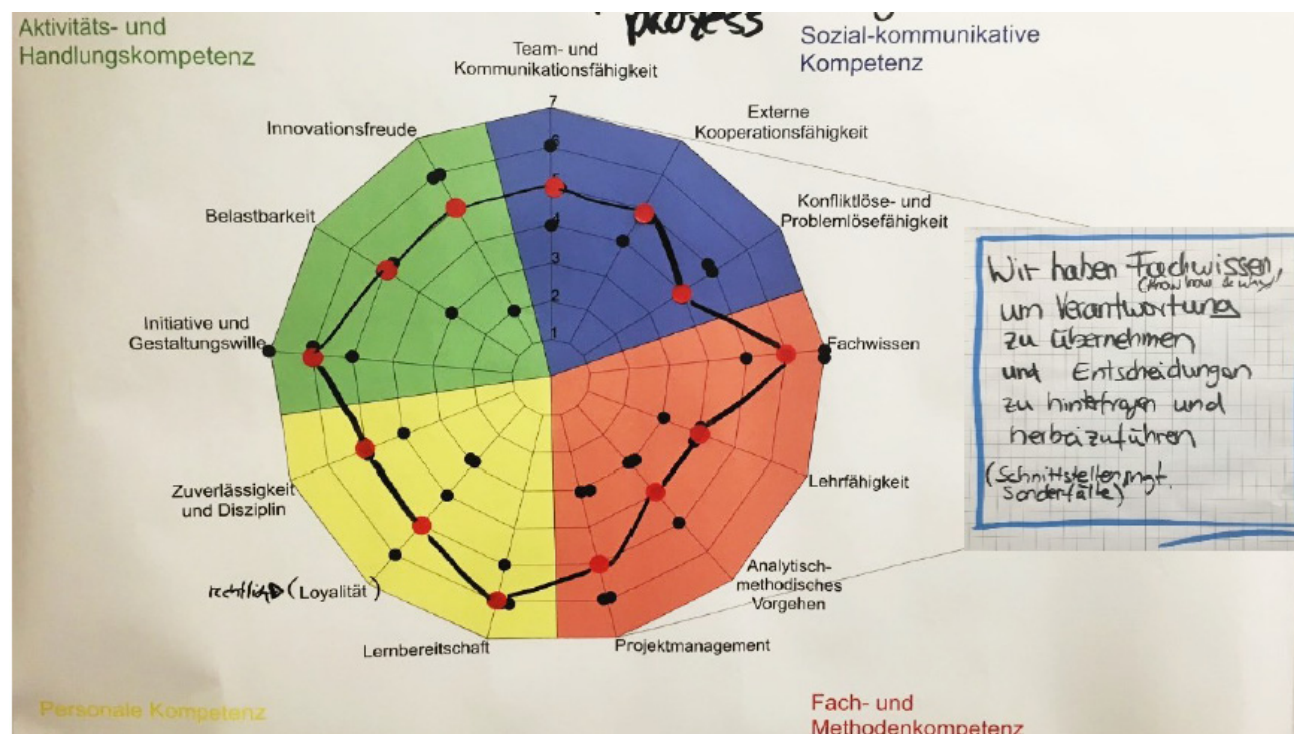 prozess
Aktivitäts- und
Handlungskompetenz
Sozial-kommunikative
Kompetenz
Team- und
Kommunikationsfähigkeit
Externe
Kooperationsfähigkeit
Konfliktlöse- und
Problemlösefähigkeit
Fachwissen
Lehrfähigkeit
Analytisch-
methodisches
Vorgehen
Projektmanagement
Lernbereitschaft
(Loyalität)
Zuverlässigkeit
und Disziplin
Initiative und
Gestaltungswille
Belastbarkeit
Innovationsfreude
7
6
5
4
3
2
1
Wir haben Fachwissen,
(Know how &
um Verantwortung
zu übernehmen
und Entscheidungen
zu hinterfragen und
herbeizuführen
(Schnittstellenmgt.
Sonderfälle)
Personale Kompetenz
Fach- und
Methodenkompetenz